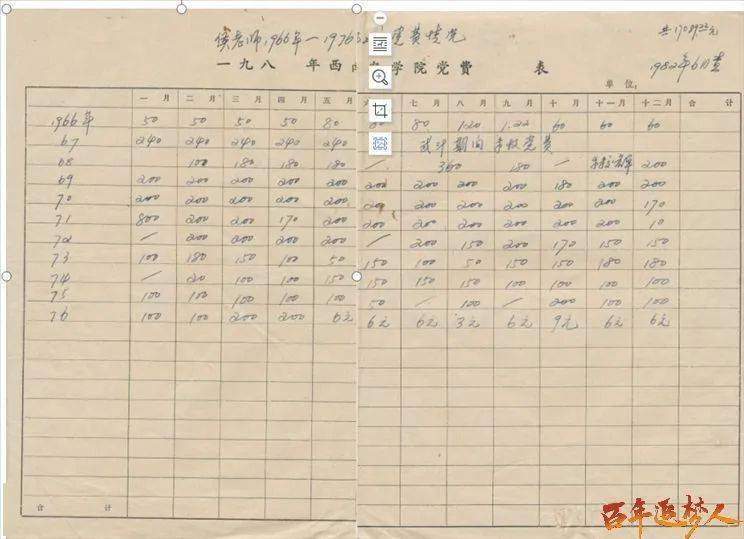 侯老师1966年—1976 党费情况
共170893元
一九八 年西 学院党费 表
1982年6月查
单位:
一月 二月 三月 四月 五 七月 八月 九月 十月 十一月 十二月 合计
1966年 50 50 50 50 80 80 120 1.22 60 60 60
67 240 240 240 240 240 武斗期间未收党费
68 100 180 180 180 / 360 180 / 200
69 200 200 200 200 200 200 200 200 200 180 200 200
70 200 200 200 200 200 200 200 200 200 200 200 170
71 800 200 200 170 200 200 200 200 200 200 200 10
72 / 200 200 200 200 / 200 150 200 170 150 150
73 100 180 150 100 50 150 100 50 150 150 180 180
74 / 20 100 100 150 150 150 150 100 100 100 100
75 100 100 100 100 100 50 / 100 / 200 100 100
76 100 100 200 200 6元 6元 6元 3元 6元 9元 6元 6元
合计
百年追梦人